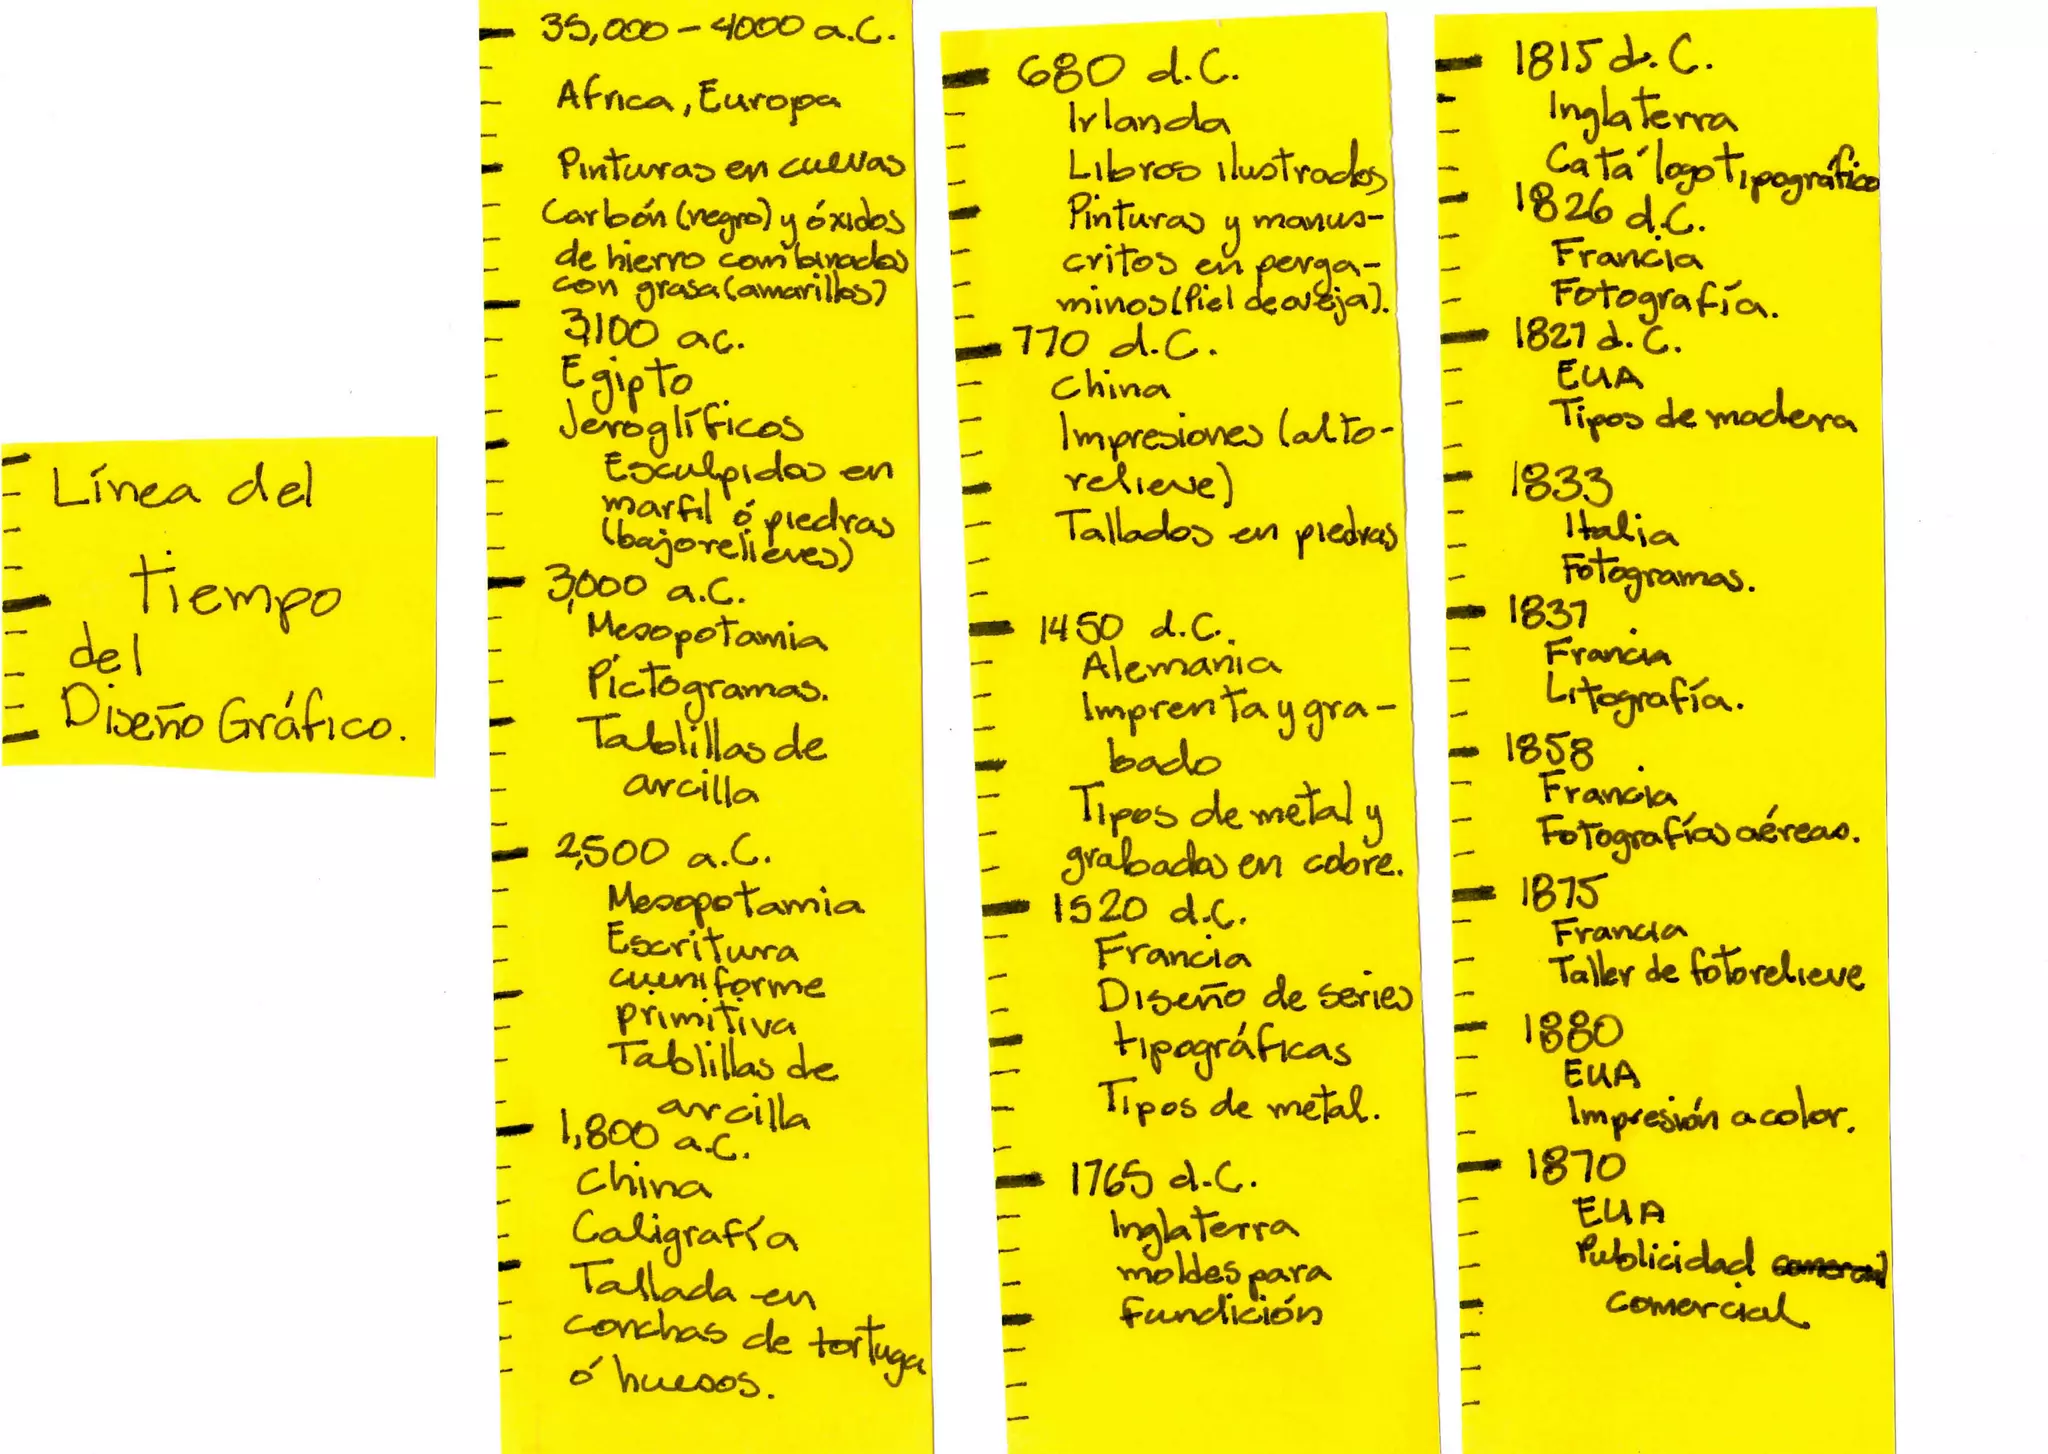 Línea del
tiempo
del
Diseño Gráfico.
35,000 - 4000 a.C.
Africa, Europa
Pinturas en cuevas
Carbón (negro) y óxidos
de hierro combinados
con grasa (amarillos)
3,100 a.c.
Egipto
Jeroglíficos
Esculpidos en
marfil ó piedras
(bajorelieves)
3,000 a.C.
Mesopotamia
Pictogramas.
Tablillas de
arcilla
2,500 a.C.
Mesopotamia
Escritura
cuniforme
primitiva
Tablillas de
arcilla
1,800 a.C.
China
Caligrafía
Tallada en
conchas de tortuga
ó huesos.
680 d.C.
Irlanda
Libros ilustrados
Pinturas y manus-
critos en perga-
minos (Piel de oveja).
770 d.C.
China
Impresiones (alto-
relieve)
Tallados en piedras
1450 d.C.
Alemania
Imprenta y gra-
bado
Tipos de metal y
grabados en cobre.
1520 d.C.
Francia
Diseño de series
tipográficas
Tipos de metal.
1765 d.C.
Inglaterra
moldes para
fundición
1815 d.C.
Inglaterra
Catálogo tipográfico
1826 d.C.
Francia
Fotografía.
1827 d.C.
EUA
Tipos de madera
1833
Italia
Fotogramas.
1837
Francia
Litografía.
1858
Francia
Fotografías aéreas.
1875
Francia
Taller de fotorelieve
1880
EUA
Impresión a color.
1870
EUA
Publicidad
comercial